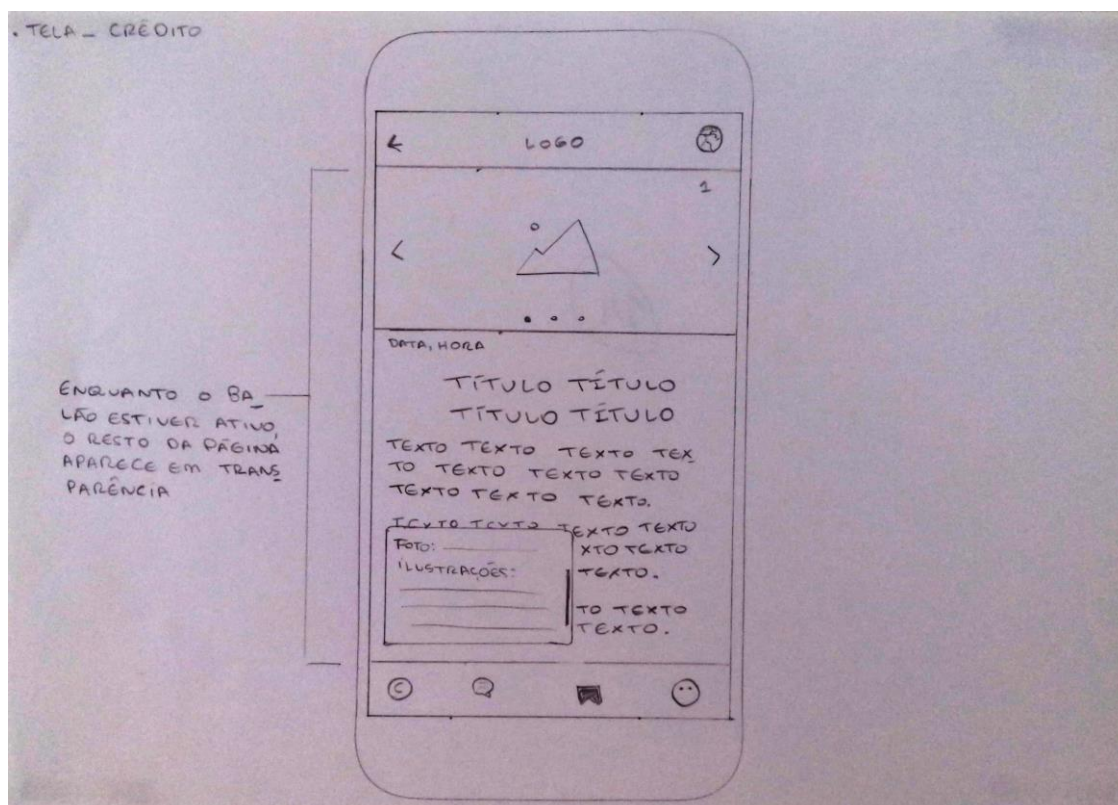 . TELA _ CRÉDITO
LOGO
1
DATA, HORA
TÍTULO TÍTULO
TÍTULO TÍTULO
TEXTO TEXTO TEXTO TEX
TO TEXTO TEXTO TEXTO
TEXTO TEXTO TEXTO.
TEXTO TEXTO TEXTO TEXTO
XTO TEXTO
TEXTO.
TO TEXTO
TEXTO.
FOTO:
ILUSTRAÇÕES:
C
ENQUANTO O BA
LÃO ESTIVER ATIVO,
O RESTO DA PÁGINA
APARECE EM TRANS
PARÊNCIA